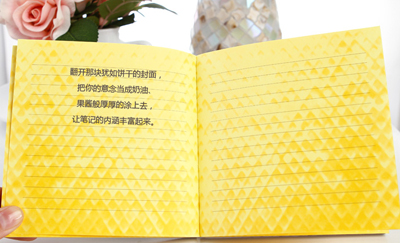 翻开那块犹如饼干的封面，
把你的意念当成奶油、
果酱般厚厚的涂上去，
让笔记的内涵丰富起来。